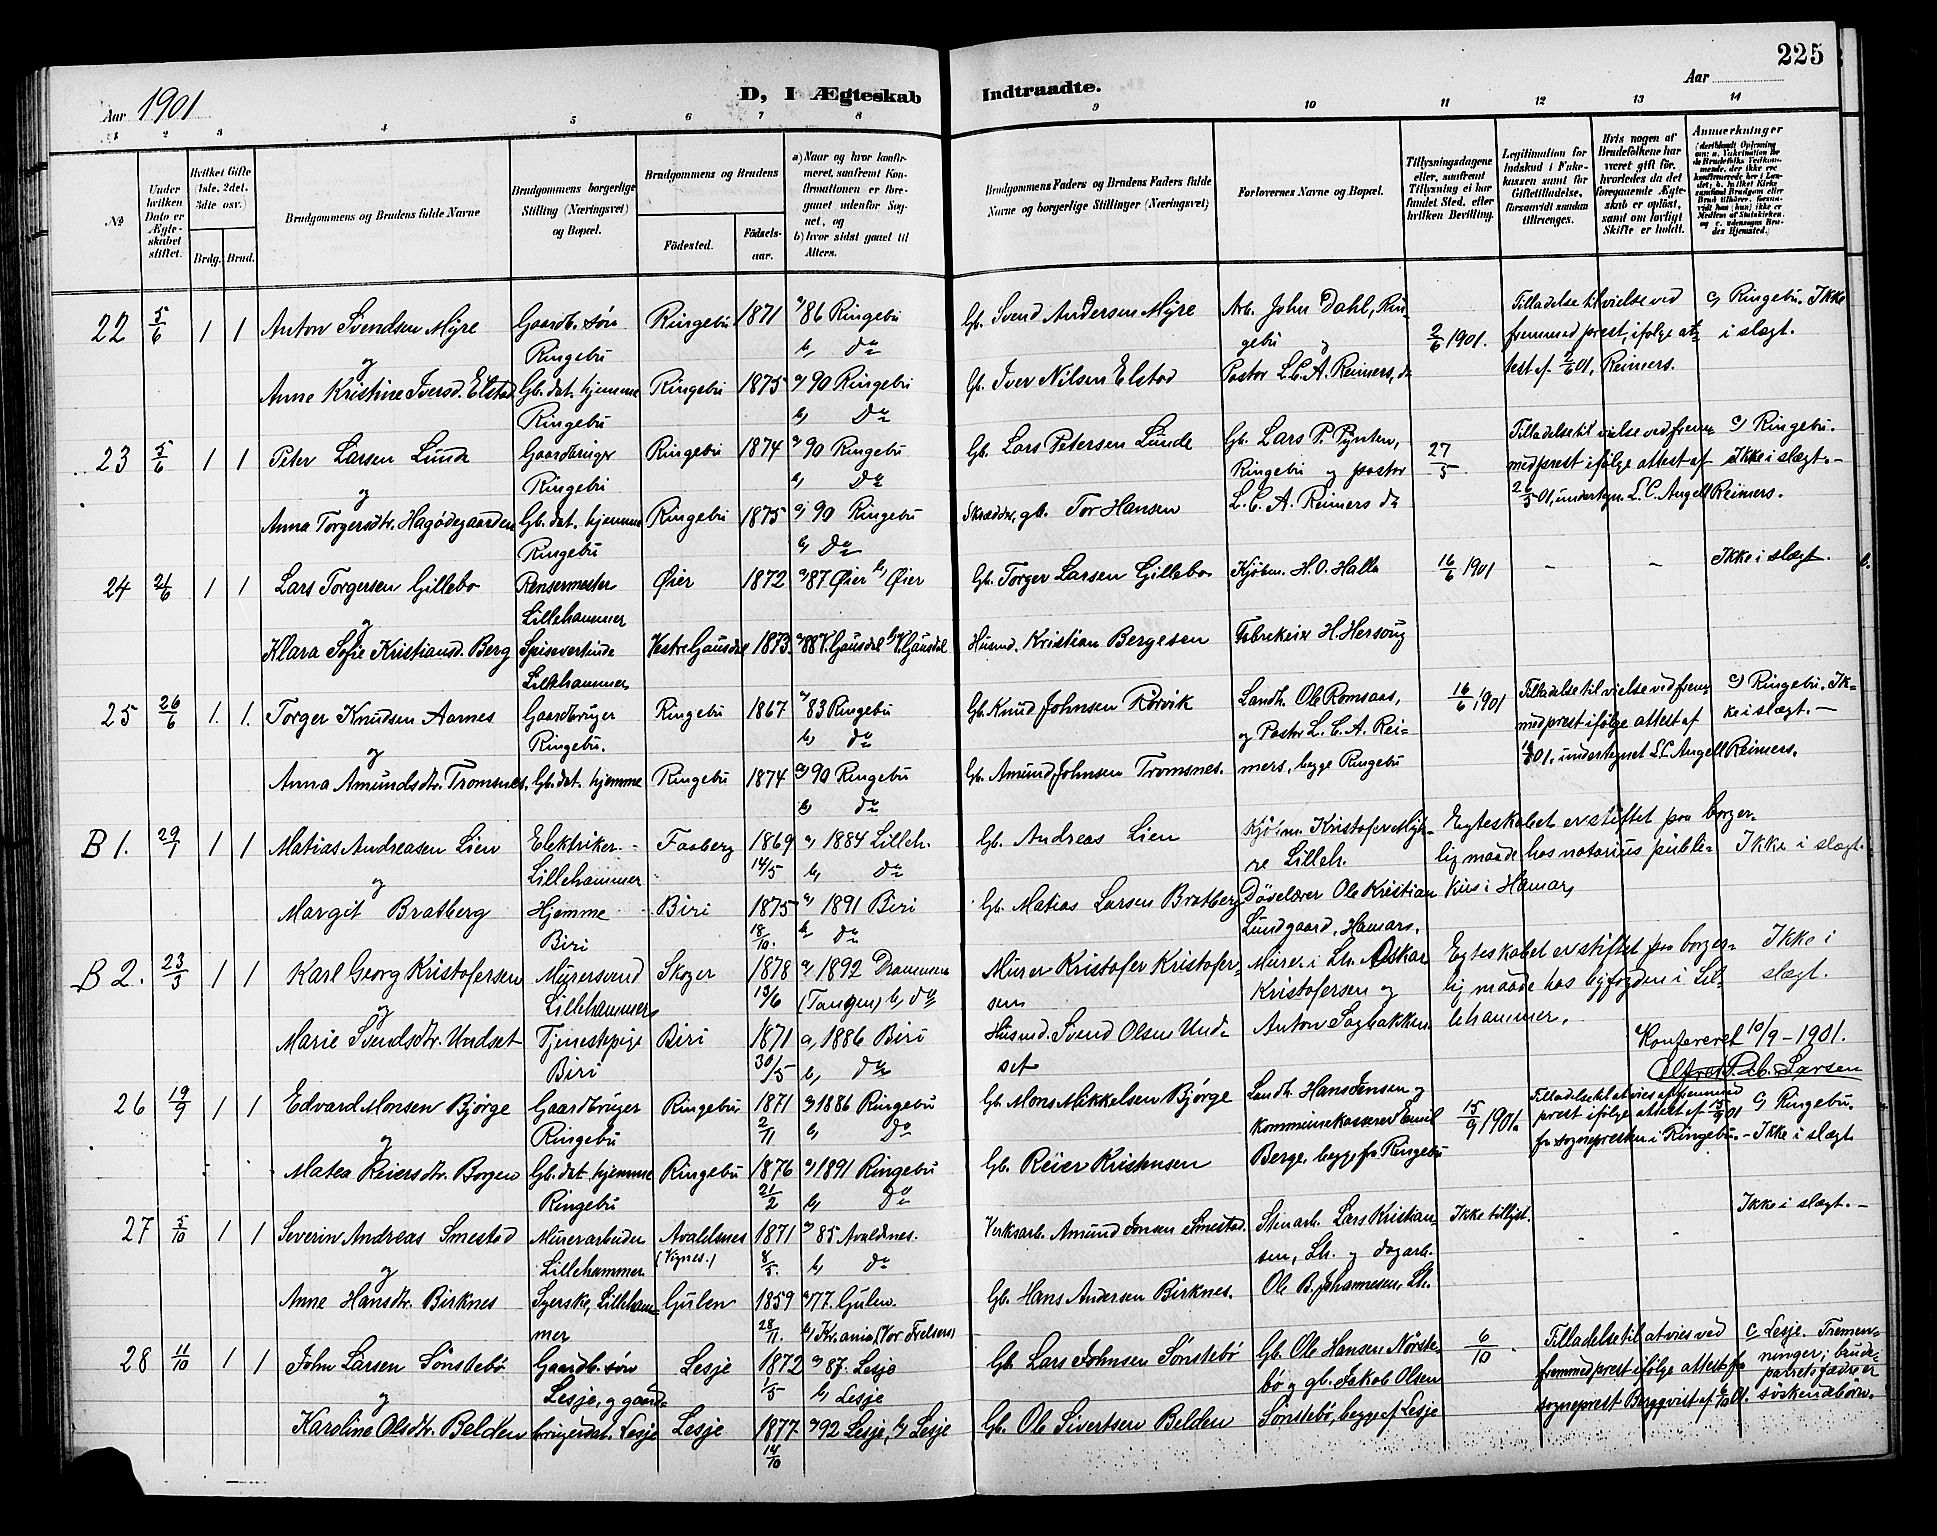 225
Aar 1901
D, I Ægteskab Indtraadte.
Aar
1 2 3 4 5 6 7 8 9 10 11 12 13 14
№
Under hvilken Dato er Ægteskabet stiftet.
Hvilket Gifte (1ste, 2det, 3die osv.)
Brdg. Brud.
Brudgommens og Brudens fulde Navne
Brudgommens borgerlige Stilling (Næringsvei) og Bopæl.
Brudgommens og Brudens
Födested. Födselsaar.
a) Naar og hvor konfirmeret, saafremt Konfirmationen er foregaaet udenfor Sognet, og
b) hvor sidst gaaet til Alters.
Brudgommens Faders og Brudens Faders fulde Navne og borgerlige Stillinger (Næringsvei)
Forlovernes Navne og Bopæl.
Tillysningsdagene eller, saafremt Tillysning ei har fundet Sted, efter hvilken Bevilling.
Legitimation for Indskud i Enkekassen samt for Giftetilladelse, forsaavidt saadan tiltrænges.
Hvis nogen af Brudefolkene har været gift før, hvorledes da det foregaaende Ægteskab er oplöst, samt om lovligt Skifte er holdt.
Anmærkninger
22 5/6 1 1 Anton Svendsen Myre Gaardb. søn Ringebu 1871 a) 86 Ringebu Gb. Svend Andersen Myre Arb. John Dahl, Rin- 2/6 1901. Tilladelse til vielse ved c) Ringebu. Ikke
og Ringebu b) do gebu og fremmed prest, ifølge at- i slægt.
Anne Kristine Iversd. Elstad Gb. dat. hjemme Ringebu 1875 a) 90 Ringebu Gb. Iver Nilsen Elstad Pastor L. C. A. Reimers, do test af 2/6 01, Reimers.
Ringebu b) do
23 5/6 1 1 Peter Larsen Lunde Gaardbruger Ringebu 1874 a) 90 Ringebu Gb. Lars Petersen Lunde Gb. Lars P. Pynten, 27/5 Tilladelse til vielse ved frem- c) Ringebu.
og Ringebu b) do Ringebu og pastor med prest ifølge attest af Ikke i slægt. –
Anna Torgersdtr. Hagødegaarden Gb. dat. hjemme Ringebu 1875 a) 90 Ringebu Skrædder, gb. Tor Hansen L. C. A. Reimers do 26/5 01, undertegn. L. C. Angell Reimers.
Ringebu b) do
24 21/6 1 1 Lars Torgersen Gillebo Rensermester Øier 1872 a) 87 Øier b) Øier Gb. Torger Larsen Gillebo Kjøbm. H. O. Halla 16/6 1901 – – Ikke i slægt.
og Lillehammer
Klara Sofie Kristiansd. Berg Spisevertinde Vestre Gausdal 1873. a) 88 V. Gausdal b) V. Gausdal Husmd. Kristian Bergesen Fabrikeier H. Hersoug
Lillehammer
25 26/6 1. 1. Torger Knudsen Aarnes Gaardbruger Ringebu 1867 a) 83 Ringebu Gb. Knud Johnsen Rørvik Landh. Ole Romsaas, 16/6 1901 Tilladelse til vielse ved frem- c) Ringebu. Ik-
og Ringebu. b) do og Pastor L. C. A. Rei- med prest ifølge attest af ke i slægt. –
Anna Amundsdtr. Tromsnes. Gb. dat. hjemme Ringebu 1874 a) 90 Ringebu Gb. Amund Johnsen Tromsnes. mers, begge Ringebu 01, undertegnet L. C. Angell Reimers.
b) do
B 1. 29/1 1 1 Matias Andreasen Lien Elektriker Faaberg 1869 14/5 a) 1884 Lilleh. Gb. Andreas Lien Kjøbm. Kristofer Myh- Egteskabet er stiftet paa borger- Ikke i slægt.
og Lillehammer b) do re Lilleh. lig maade hos notarius publi-
Margit Bratberg Hjemme Biri 1875 18/10. a) 1891 Biri Gb. Matias Larsen Bratberg Døvelærer Ole Kristian kus i Hamar,
Biri b) do Lundgaard, Hamars.
B 2. 23/3 1 1 Karl Georg Kristofersen Murersvend Skoger 1878 19/6 a) 1892 Drammen Murer Kristofer Kristofer- Murer i Lh. Oskar Egteskabet er stiftet paa borger- Ikke i
og Lillehammer (Tangen) b) do sen Kristofersen og lig maade hos byfogden i Lil- slægt.
Marie Svendsdtr. Undset Tjenestepige Biri 1871 30/5 a) 1886 Biri Husmd. Svend Olsen Und- Anton Sagbakken lehammer.
Biri b) do set
Konfereret 10/9 – 1901.
Larsen
26 19/9 1 1 Edvard Monsen Bjørge Gaardbruger Ringebu 1871 2/11 a) 1886 Ringebu Gb. Mons Mikkelsen Bjørge Landh. Hans Jensen og 15/9 1901. Tilladelse til at vies af fremmed c) Ringebu.
og Ringebu b) do kommunekasserer Emil prest ifølge attest af 15/9 01 – Ikke i slægt
Matea Reiersdtr. Borgen Gb. dat. hjemme Ringebu 1876 21/2 a) 1891 Ringebu Gb. Reier Kristensen Berge, begge fra Ringebu fra sognepresten i Ringebu.
Ringebu b) do
27 5/10 1 1 Severin Andreas Smestad Minerarbeider Avaldsnes 1871 8/5. a) 85 Avaldsnes. Verksarb. Amund Jonsen Smestad. Stenarb. Lars Kristian- Ikke tillyst. – – Ikke i slægt. –
og Lillehammer (Vignes.) b) do sen, Lh. og dagarb.
Anne Hansdtr. Birknes Syerske, Lilleham- Gulen 1859 28/11. a) 77. Gulen. Gb. Hans Andersen Birknes. Ole B. Johannesen, Lh.
mer b) Kr.ania, (Vor Frelsers)
28 11/10 1 1 John Larsen Sønstebø Gaardb. søn Lesje 1872 1/5 a) 87. Lesje Gb. Lars Johnsen Sønstebø Gb. Ole Hansen Nørste- 6/10 Tilladelse til at vies ved c) Lesje. Tremen-
og Lesje, og gaard- b) Lesje bø og gb. Jakob Olsen fremmed prest ifølge attest fra ninger; brude-
Karoline Olsdtr. Belden brugerdat. Lesje Lesje 1877 14/10 a) 92 Lesje, b) Lesje Gb. Ole Sivertsen Belden Sønstebø, begge af Lesje sogneprest Berggvist af 6/10 01. parrets fædre er søskendebørn.